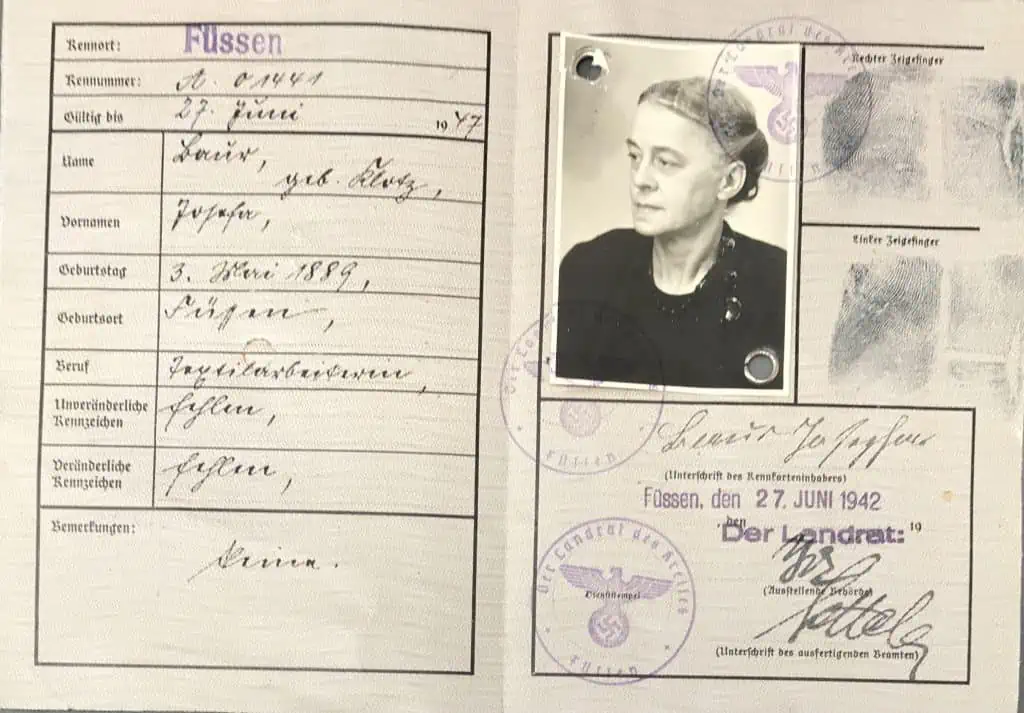 Kennort: Füssen
Kennummer: A. 01441
Gültig bis 27. Juni 1947
Name Baur,
geb. Klotz,
Vornamen Josefa,
Geburtstag 3. Mai 1889,
Geburtsort Füssen,
Beruf Textilarbeiterin,
Unveränderliche Kennzeichen fehlen,
Veränderliche Kennzeichen fehlen,
Bemerkungen:
keine.
Der Landrat des Kreises
Füssen
Rechter Zeigefinger
Linker Zeigefinger
Der Landrat des Kreises
Füssen
Baur Josepha
(Unterschrift des Kennkarteninhabers)
Füssen, den 27. JUNI 1942
, den 19
Der Landrat:
(Ausstellende Behörde)
(Unterschrift des ausfertigenden Beamten)
Der Landrat des Kreises
Dienststempel
Füssen